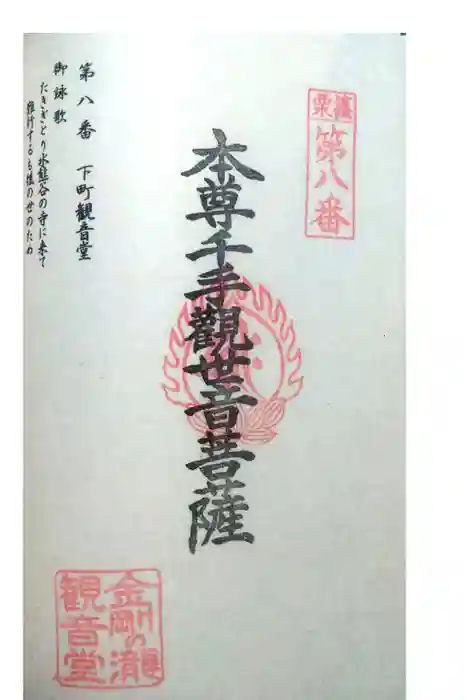 第八番
本尊千手觀世音菩薩
第八番 下町観音堂
御詠歌
たきぎとり水熊谷の寺に来て
難行するも後の世のため
金剛の瀧
観音堂